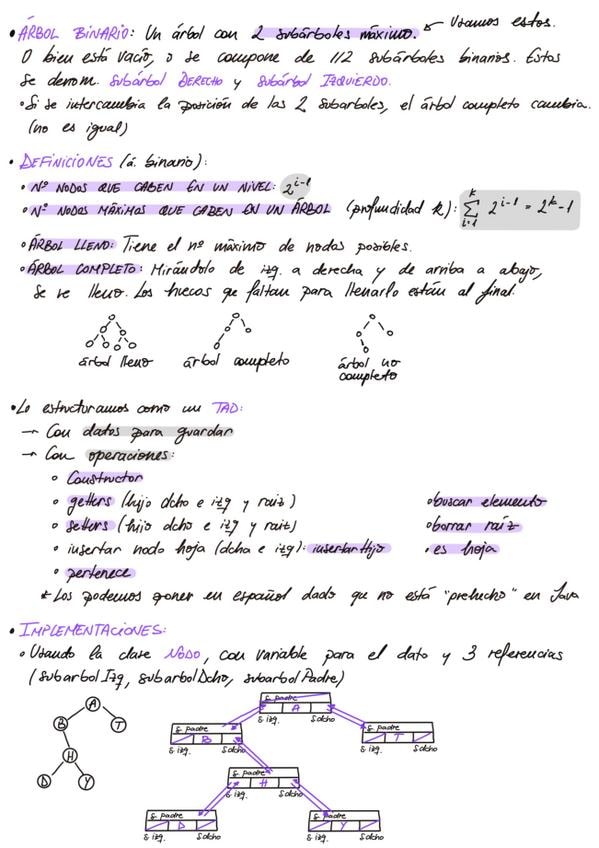 • ÁRBOL BINARIO: Un árbol con 2 subárboles máximo. ← Usamos estos.
O bien está vacío, o se compone de 1/2 subárboles binarios. Estos
se denom. subárbol DERECHO y subárbol IZQUIERDO.
• Si se intercambia la posición de las 2 subarboles, el árbol completo cambia.
(no es igual)
• DEFINICIONES (á. binario):
• Nº NODOS QUE CABEN EN UN NIVEL: 2^{i-1}
• Nº NODOS MÁXIMOS QUE CABEN EN UN ÁRBOL (profundidad k): \sum_{i=1}^{k} 2^{i-1} = 2^k - 1
• ÁRBOL LLENO: Tiene el nº máximo de nodos posibles.
• ÁRBOL COMPLETO: Mirándolo de izq. a derecha y de arriba a abajo,
se ve lleno. Los huecos qe faltan para llenarlo están al final.
árbol lleno árbol completo árbol no
completo
• Lo estructuramos como un TAD:
→ Con datos para guardar
→ Con operaciones:
• Constructor
• getters (hijo dcho e izq y raiz) • buscar elemento
• setters (hijo dcho e izq y raiz) • borrar raíz
• insertar nodo hoja (dcha e izq): insertarHijo • es hoja
• pertenece
* Los podemos poner en español dado que no está "prehecho" en Java
• IMPLEMENTACIONES:
• Usando la clase NODO, con variable para el dato y 3 referencias
(subarbolIzq, subarbolDcho, subarbolPadre)
A
B T
H
D Y
s. padre
A
s. izq. sdcho
s. padre
B
s. izq. sdcho
s. padre
T
s. izq. sdcho
s. padre
H
s. izq. sdcho
s. padre
D
s. izq. sdcho
s. padre
Y
s. izq. sdcho